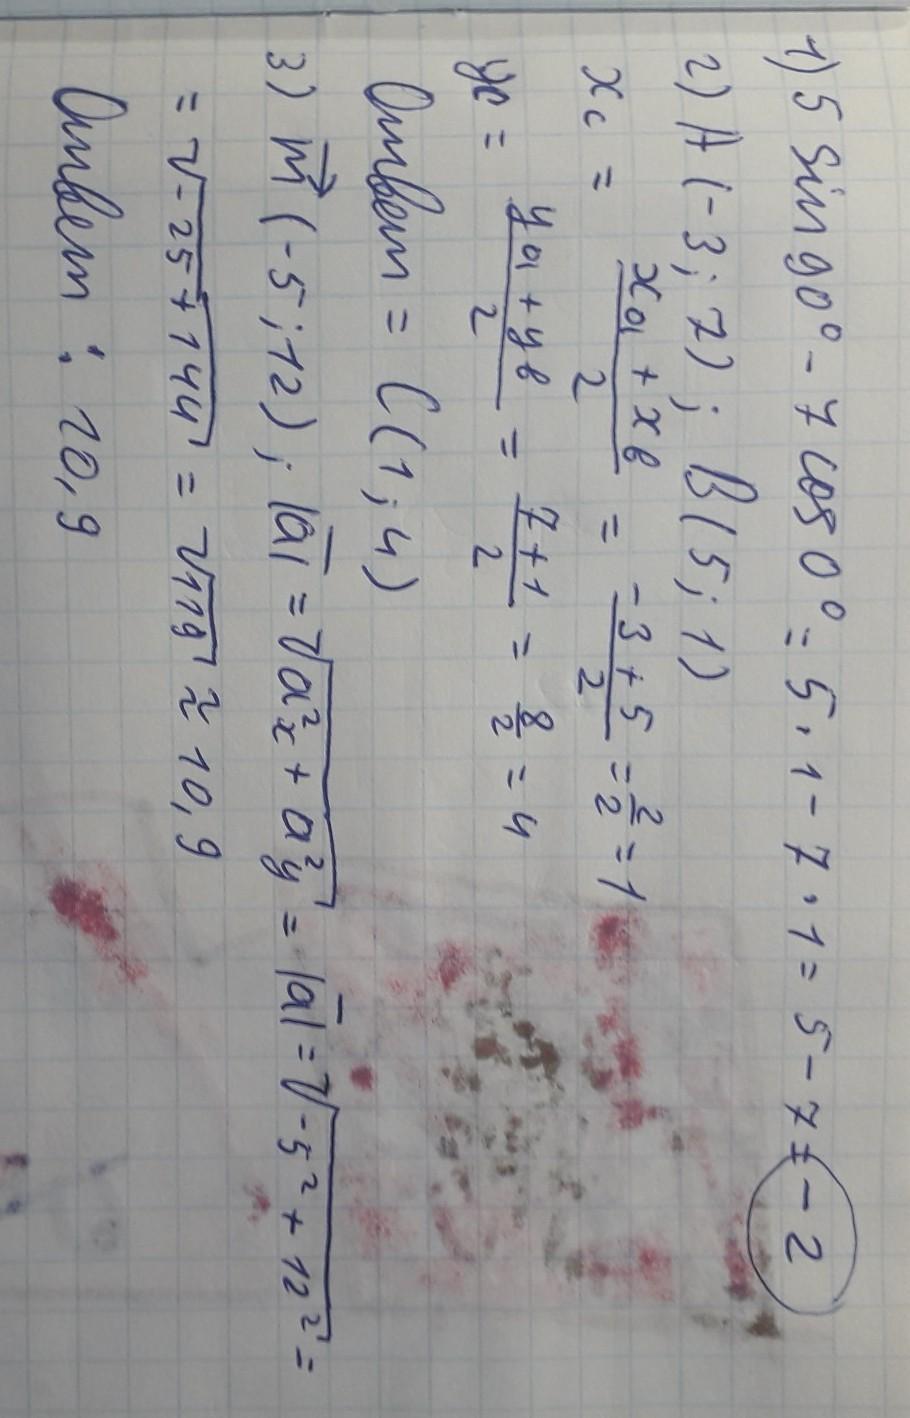 1) 5 sin 90° - 7 cos 0° = 5 · 1 - 7 · 1 = 5 - 7 = - 2
2) A (-3; 7); B(5; 1)
xc = (xa + xв)/2 = (-3 + 5)/2 = 2/2 = 1
yc = (ya + yв)/2 = (7 + 1)/2 = 8/2 = 4
Ответ = C(1; 4)
3) m⃗ (-5; 12); |a̅| = √(a²x + a²y) = |a̅| = √(-5² + 12²) =
= √(-25 + 144) = √119 ≈ 10,9
Ответ : 10,9